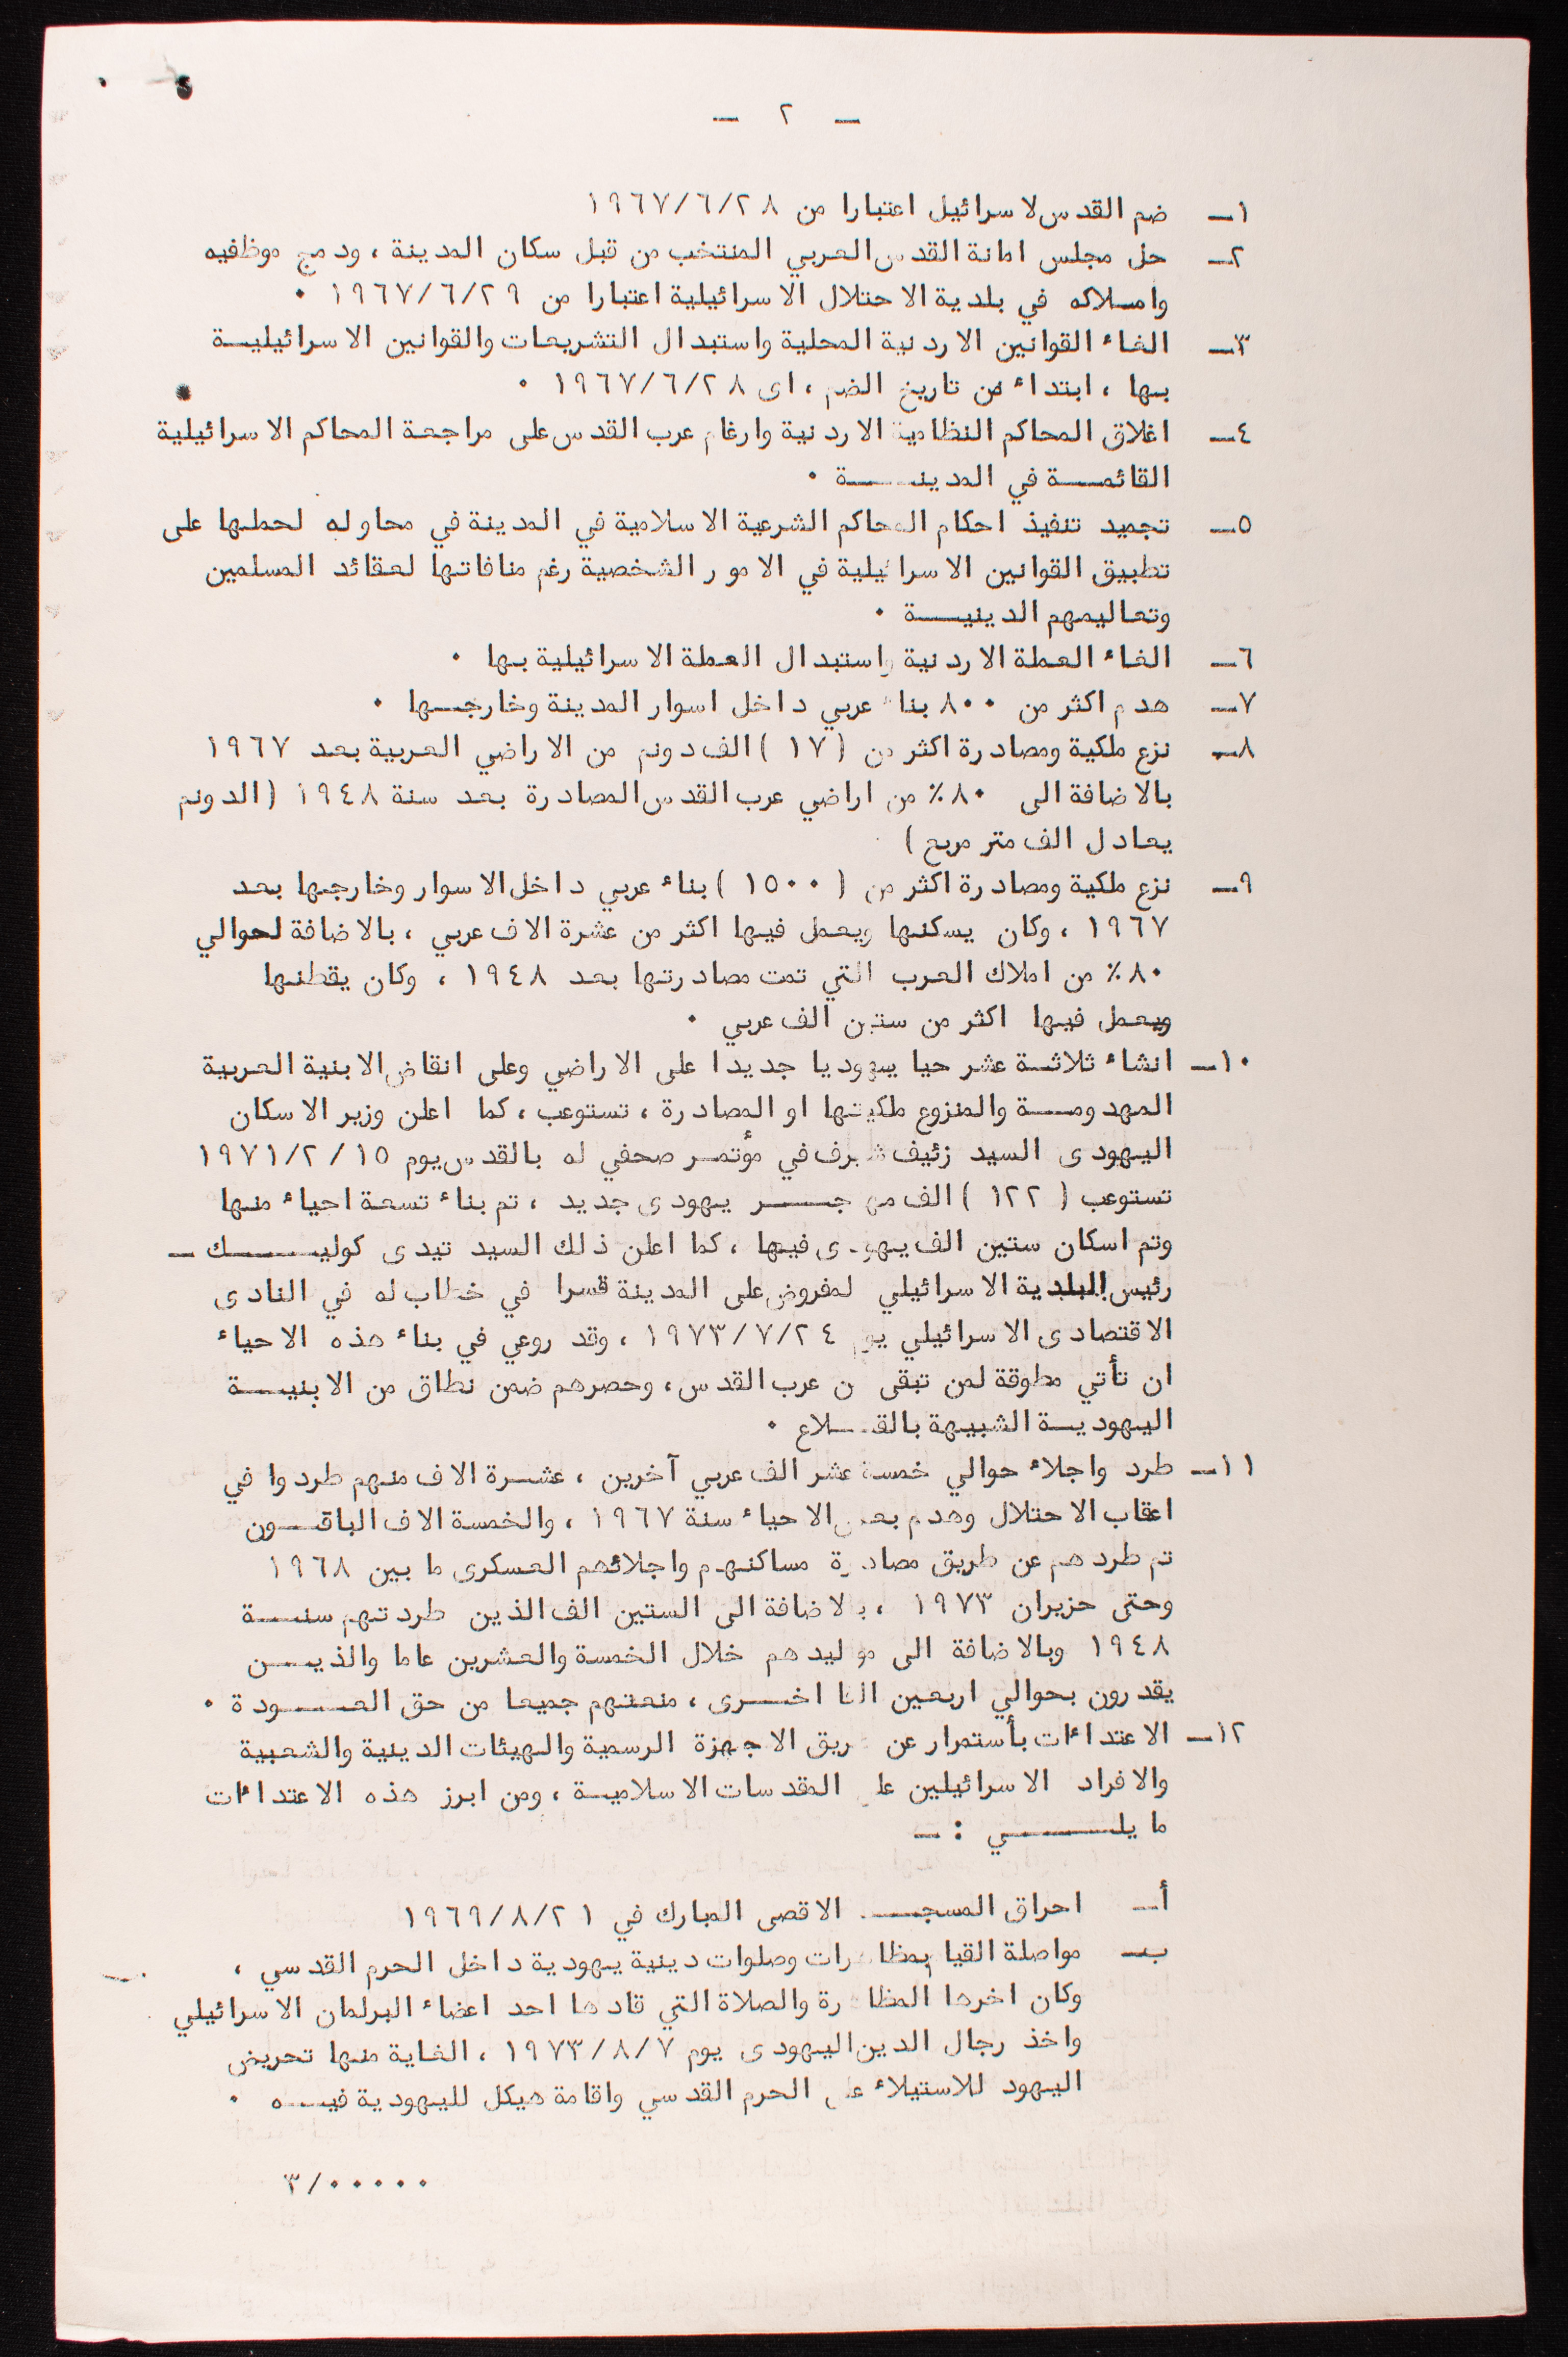 — ٢ —
١— ضم القدس لاسرائيل اعتبارا من ١٩٦٧/٦/٢٨
٢— حل مجلس امانة القدس العربي المنتخب من قبل سكان المدينة ، ودمج موظفيه
واملاكه في بلدية الاحتلال الاسرائيلية اعتبارا من ١٩٦٧/٦/٢٩ ٠
٣— الغاء القوانين الاردنية المحلية واستبدال التشريعات والقوانين الاسرائيليـــة
بها ، ابتداء من تاريخ الضم ، اى ١٩٦٧/٦/٢٨ ٠
٤— اغلاق المحاكم النظامية الاردنية وارغام عرب القدس على مراجعة المحاكم الاسرائيلية
القائمـــة في المدينـــــة ٠
٥— تجميد تنفيذ احكام المحاكم الشرعية الاسلامية في المدينة في محاوله لحملها على
تطبيق القوانين الاسرائيلية في الامور الشخصية رغم منافاتها لعقائد المسلمين
وتعاليمهم الدينيــــة ٠
٦— الغاء العملة الاردنية واستبدال العملة الاسرائيلية بها ٠
٧— هدم اكثر من ٨٠٠ بناء عربي داخل اسوار المدينة وخارجــها ٠
٨— نزع ملكية ومصادرة اكثر من ( ١٧ ) الف دونم من الاراضي العربية بعد ١٩٦٧
بالاضافة الى ٨٠٪ من اراضي عرب القدس المصادرة بعد سنة ١٩٤٨ ( الدونم
يعادل الف متر مربع )
٩— نزع ملكية ومصادرة اكثر من ( ١٥٠٠ ) بناء عربي داخل الاسوار وخارجها بعد
١٩٦٧ ، وكان يسكنها ويعمل فيها اكثر من عشرة الاف عربي ، بالاضافة لحوالي
٨٠٪ من املاك العرب التي تمت مصادرتها بعد ١٩٤٨ ، وكان يقطنها
ويعمل فيها اكثر من ستين الف عربي ٠
١٠— انشاء ثلاثـة عشر حيا يهوديا جديدا على الاراضي وعلى انقاض الابنية العربية
المهدومـــة والمنزوع ملكيتها او المصادرة ، تستوعب ، كما اعلن وزير الاسكان
اليهودى السيد زئيف شرف في مؤتمـر صحفي له بالقدس يوم ١٩٧١/٢/١٥
تستوعب ( ١٢٢ ) الف مهاجــــر يهودى جديد ، تم بناء تسعة احياء منها
وتم اسكان ستين الف يهودى فيها ، كما اعلن ذلك السيد تيدى كوليــــــك —
رئيس البلدية الاسرائيلي المفروض على المدينة قسرا في خطاب له في النادى
الاقتصادى الاسرائيلي يوم ١٩٧٣/٧/٢٤ ، وقد روعي في بناء هذه الاحياء
ان تأتي مطوقة لمن تبقى من عرب القدس ، وحصرهم ضمن نطاق من الابنيـــة
اليهوديـة الشبيهة بالقـــلاع ٠
١١— طرد واجلاء حوالي خمسة عشر الف عربي آخرين ، عشـرة الاف منهم طردوا في
اعقاب الاحتلال وهدم بعض الاحياء سنة ١٩٦٧ ، والخمسة الاف الباقــون
تم طردهم عن طريق مصادرة مساكنهم واجلائهم العسكرى ما بين ١٩٦٨
وحتى حزيران ١٩٧٣ ، بالاضافة الى الستين الف الذين طردتهم سنـــة
١٩٤٨ وبالاضافة الى مواليدهم خلال الخمسة والعشرين عاما والذيـــن
يقدرون بحوالي اربعين الفا اخــرى ، منعتهم جميعا من حق العــــودة ٠
١٢— الاعتداءات بأستمرار عن طريق الاجهزة الرسمية والهيئات الدينية والشعبية
والافراد الاسرائيلين على المقدسات الاسلاميـة ، ومن ابرز هذه الاعتداءات
ما يلـــــــي : —
أ— احراق المسجــد الاقصى المبارك في ١٩٦٩/٨/٢١
ب— مواصلة القيام بمظاهرات وصلوات دينية يهودية داخل الحرم القدسي ،
وكان اخرها المظاهرة والصلاة التي قادها احد اعضاء البرلمان الاسرائيلي
واخذ رجال الدين اليهودى يوم ١٩٧٣/٨/٧ ، الغاية منها تحريض
اليهود للاستيلاء على الحرم القدسي واقامة هيكل لليهودية فيــه ٠
٣/٠٠٠٠٠